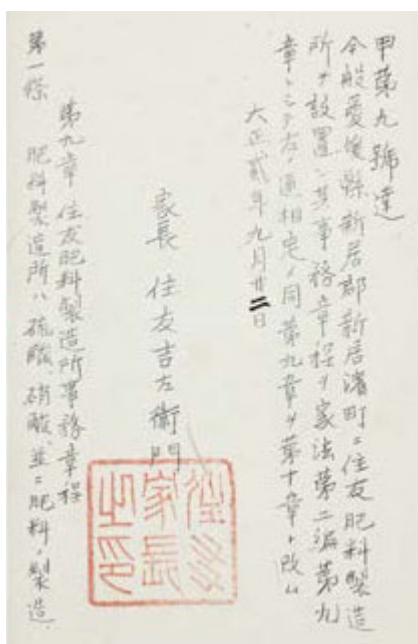 甲第九號達
今般愛媛縣新居郡新居濱町ニ住友肥料製造
所ヲ設置シ其事務章程ヲ家法第二編第九
章トシテ左ノ通相定メ同第九章ヲ第十章ト改ム
大正貳年九月廿二日
家長 住友吉左衞門
住友家長之印
第九章 住友肥料製造所事務章程
第一條 肥料製造所ハ硫酸、硝酸、並ニ肥料ノ製造